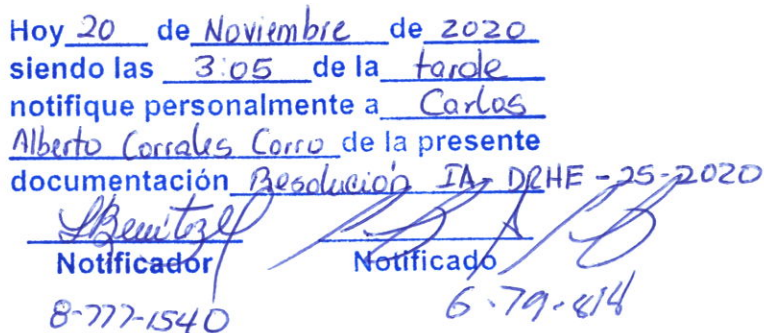 Hoy 20 de Noviembre de 2020
siendo las 3:05 de la tarde
notifique personalmente a Carlos
Alberto Corrales Corro de la presente
documentación Resolución IA-DRHE-25-2020
Notificador Notificado
8-777-1540 6-79-814